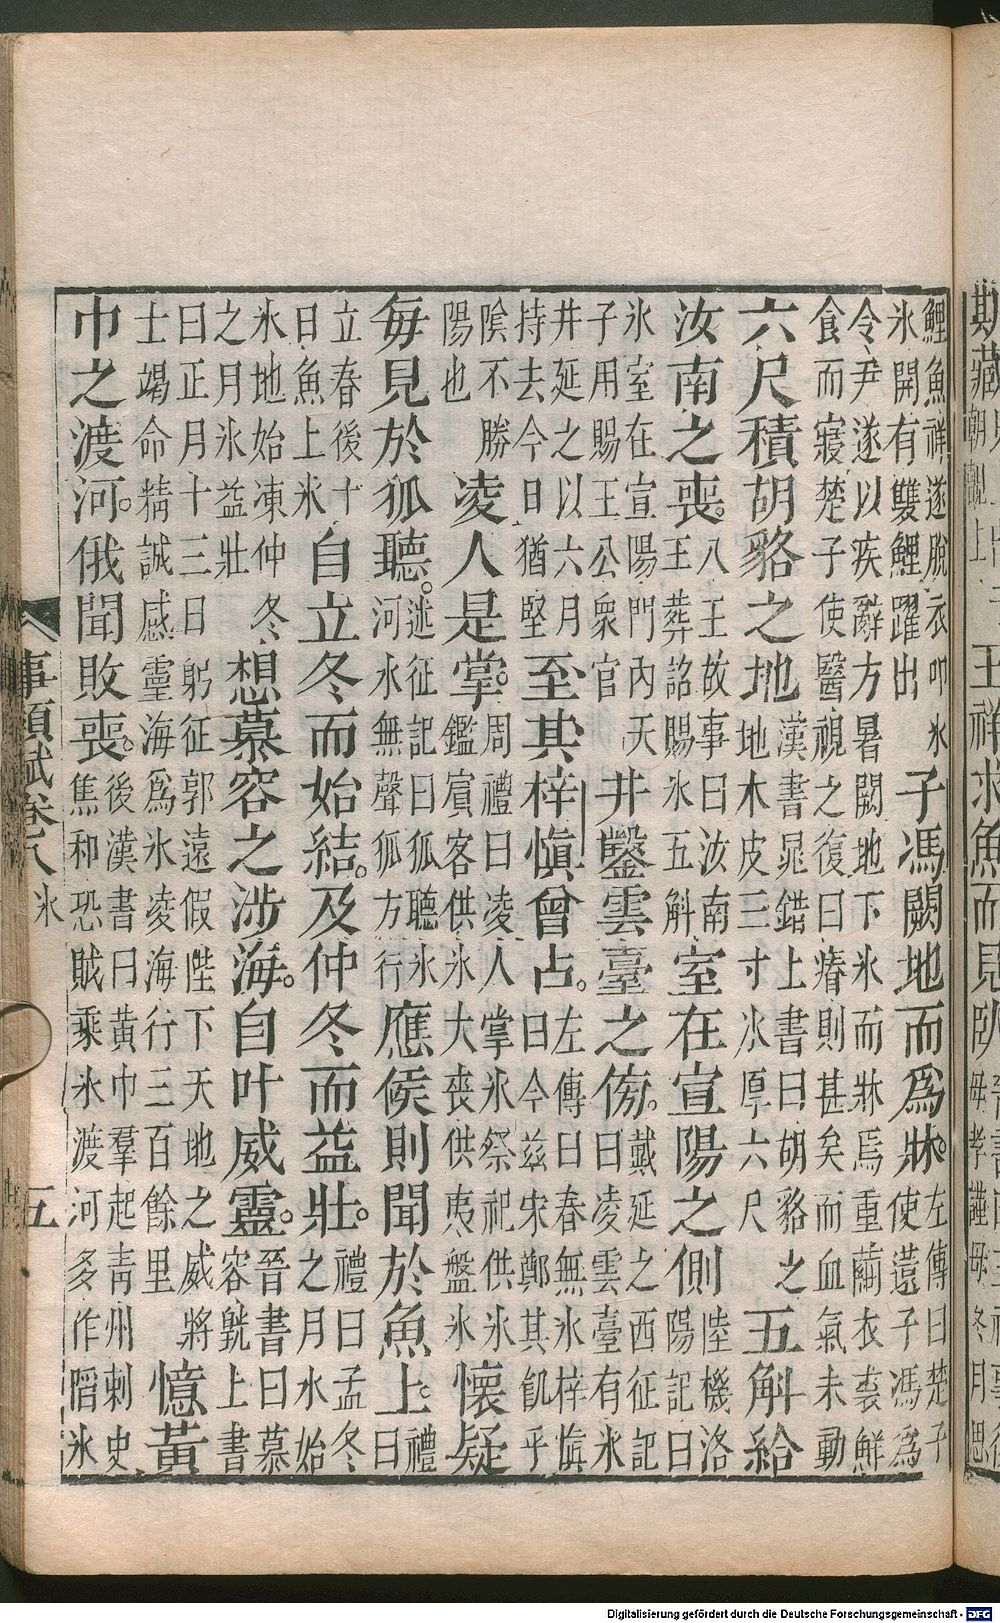 鯉魚祥遂脫衣叩氷
氷開有雙鯉躍出
子馮闕地而爲牀。
左傳曰楚子
使薳子馮爲
令尹遂以疾辭方暑闕地下氷而牀焉重繭衣裘鮮
食而寢楚子使醫視之復曰瘠則甚矣而血氣未動
六尺積胡貉之地
漢書晁錯上書曰胡貉之
地木皮三寸氷厚六尺
五斛給
汝南之喪。
八王故事曰汝南
王葬詔賜氷五斛
室在宣陽之側
陸機洛
陽記曰
氷室在宣陽門內天
子用賜王公衆官
井鑿雲臺之傍。
戴延之西征記
曰凌雲臺有氷
井延之以六月
持去今日猶堅
至其梓愼曾占。
左傳曰春無氷梓愼
曰今兹宋鄭其飢乎
陰不勝
陽也
凌人是掌。
周禮曰凌人掌氷祭祀供氷
鑑賔客供氷大喪供夷盤氷
懷疑
每見於狐聽。
述征記曰狐聽氷
河氷無聲狐方行
應候則聞於魚上。
禮
曰
立春後十
日魚上氷
自立冬而始結。及仲冬而益壯。
禮曰孟冬
之月水始
氷地始凍仲冬
之月氷益壯
想慕容之涉海。自叶威靈。
晉書曰慕
容皝上書
曰正月十三日躬征郭遠假陛下天地之威將
士竭命精誠感靈海爲氷凌海行三百餘里
憶黃
巾之渡河。俄聞敗喪。
後漢書曰黃巾羣起青州刺史
焦和恐賊乘氷渡河多作陷氷
事類賦卷八
氷
五
Digitalisierung gefördert durch die Deutsche Forschungsgemeinschaft - DFG